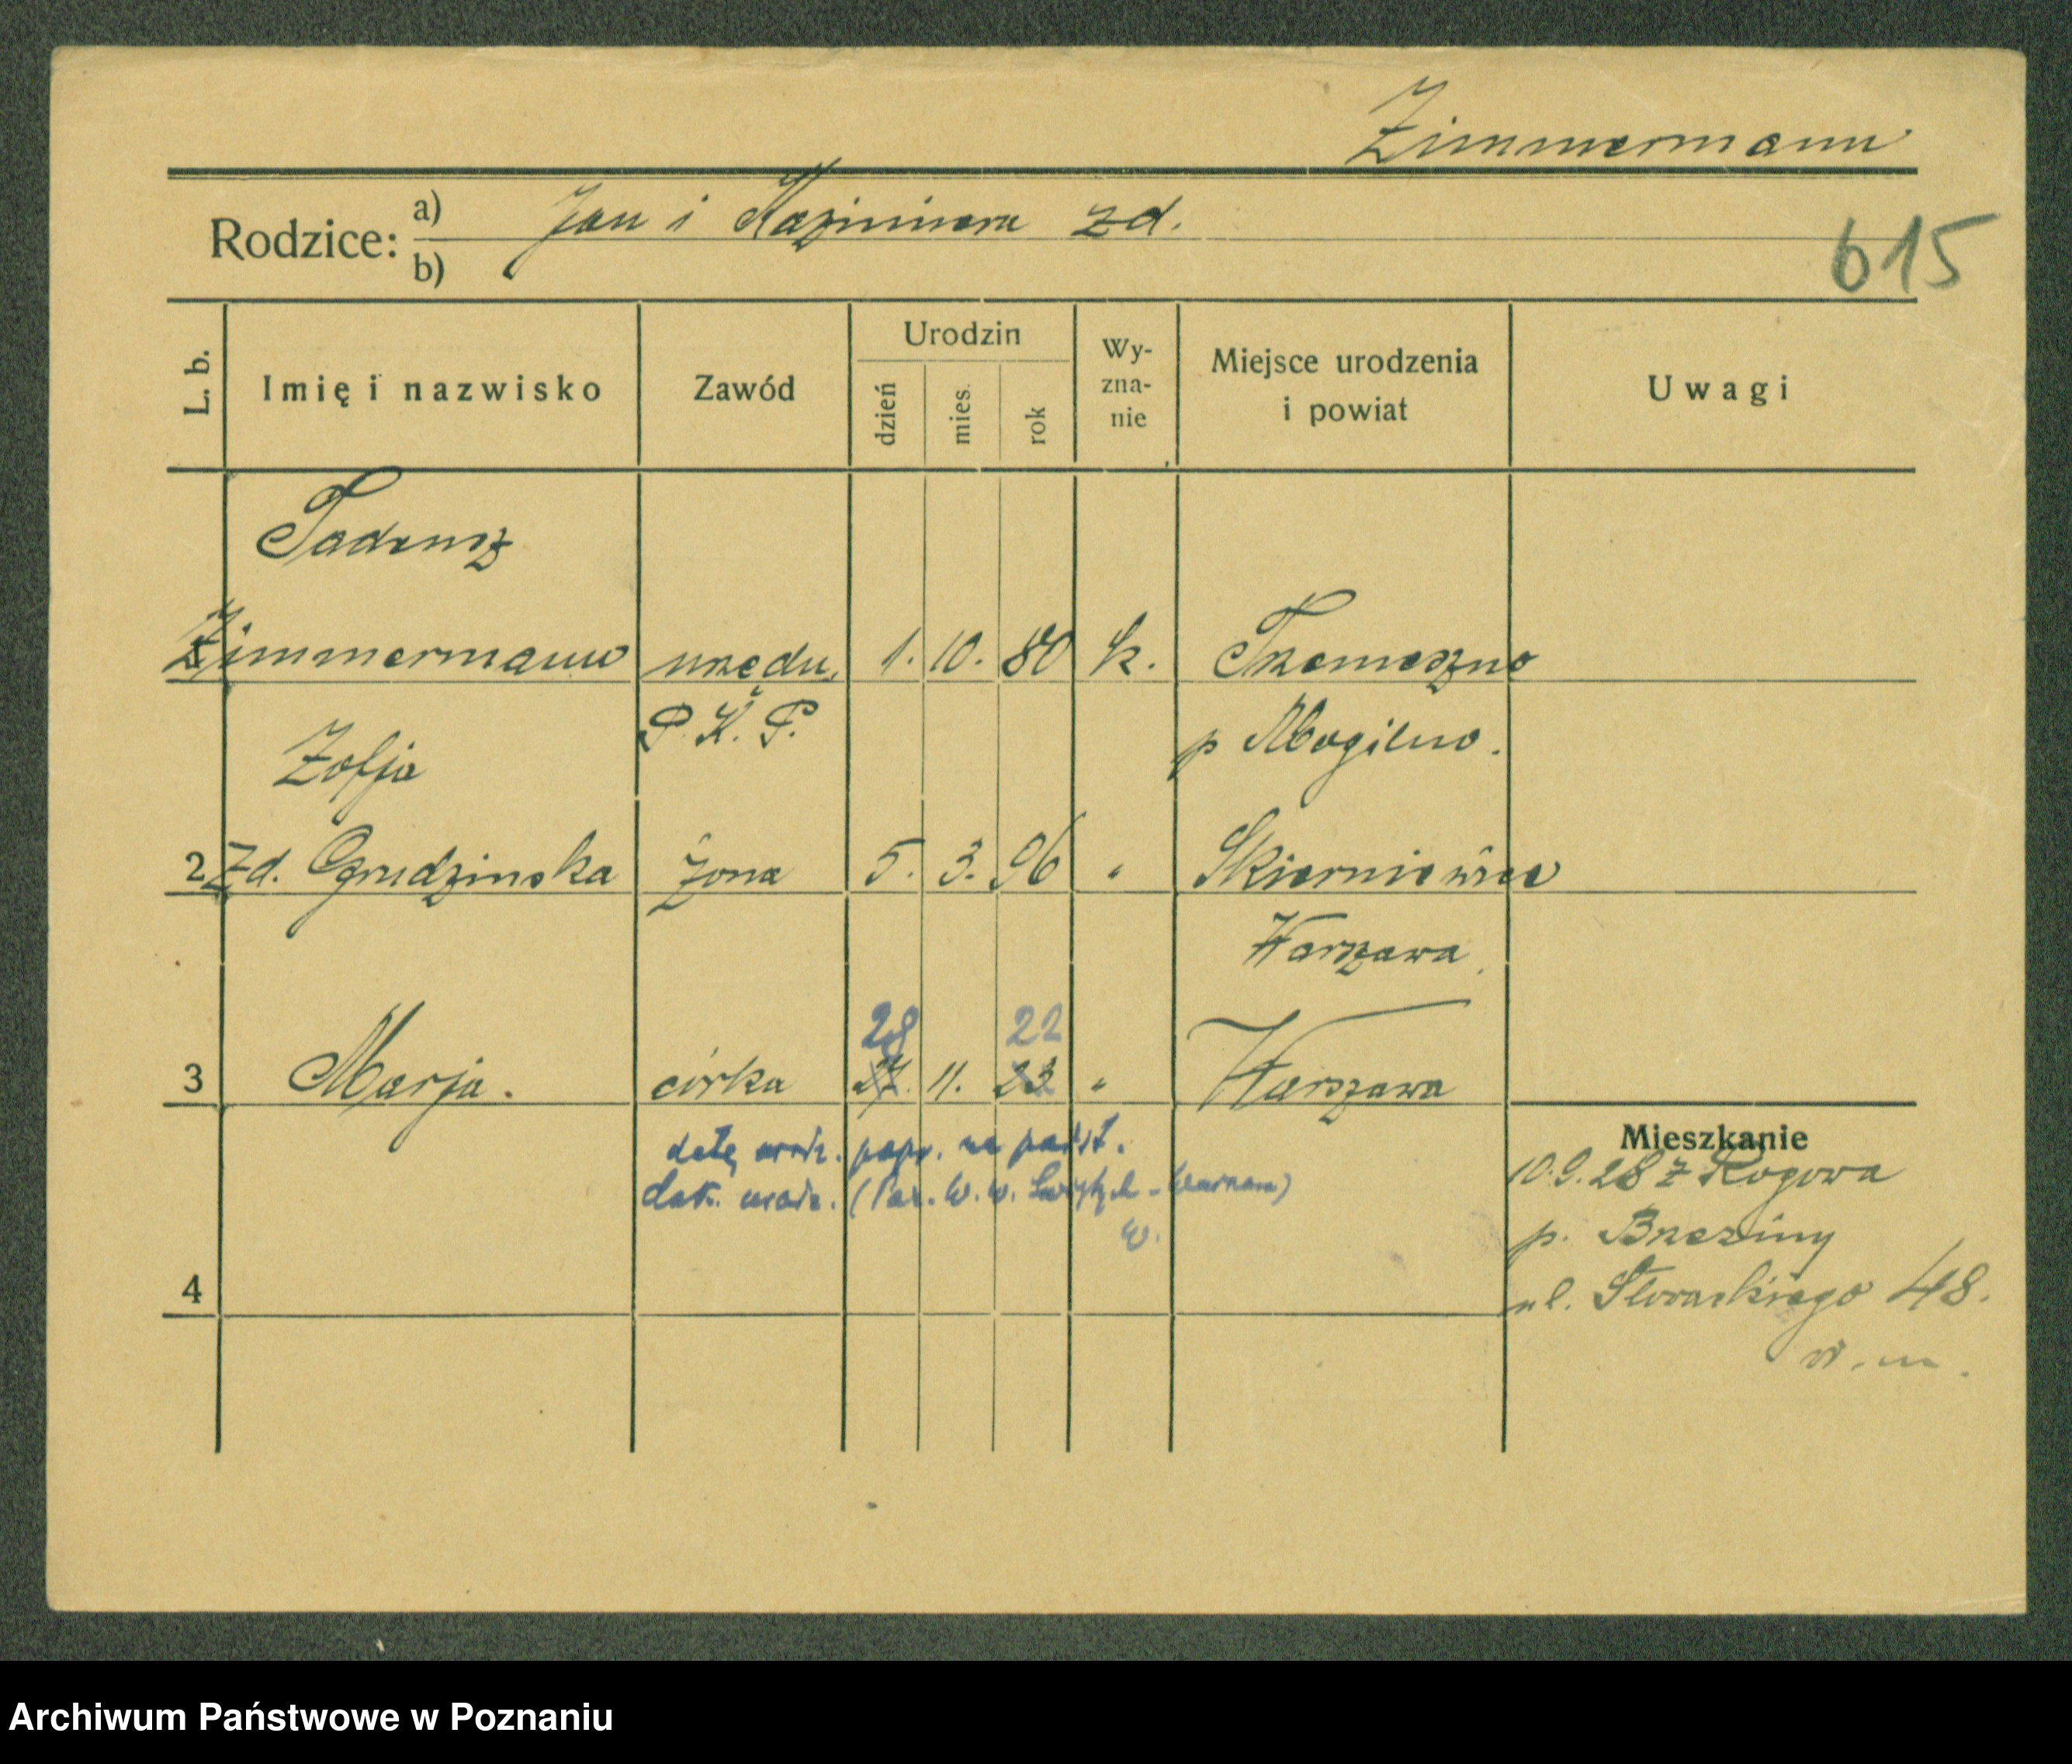 Zimmermann
Rodzice: a) Jan i Kazimiera zd.
b)
615
L. b.
Imię i nazwisko
Zawód
Urodzin
dzień
mies.
rok
Wy-
zna-
nie
Miejsce urodzenia
i powiat
Uwagi
Tadeusz
1 Zimmermann urzędn. 1. 10. 80 k. Trzemeszno
P. K. P. p Mogilno.
Zofja
2 zd. Grudzinska żona 5. 3. 96 " Skierniewice
Warszawa
28 22
3 Marja. córka 27. 11. 23 " Warszawa
datę urodz. popr. na podst.
dok. urodz. (Par. W. W. Świętych - Warszawa)
W.
4
Mieszkanie
10.9.28 z Rogowa
p. Brzeziny
ul. Słowackiego 48.
w. m.
Archiwum Państwowe w Poznaniu